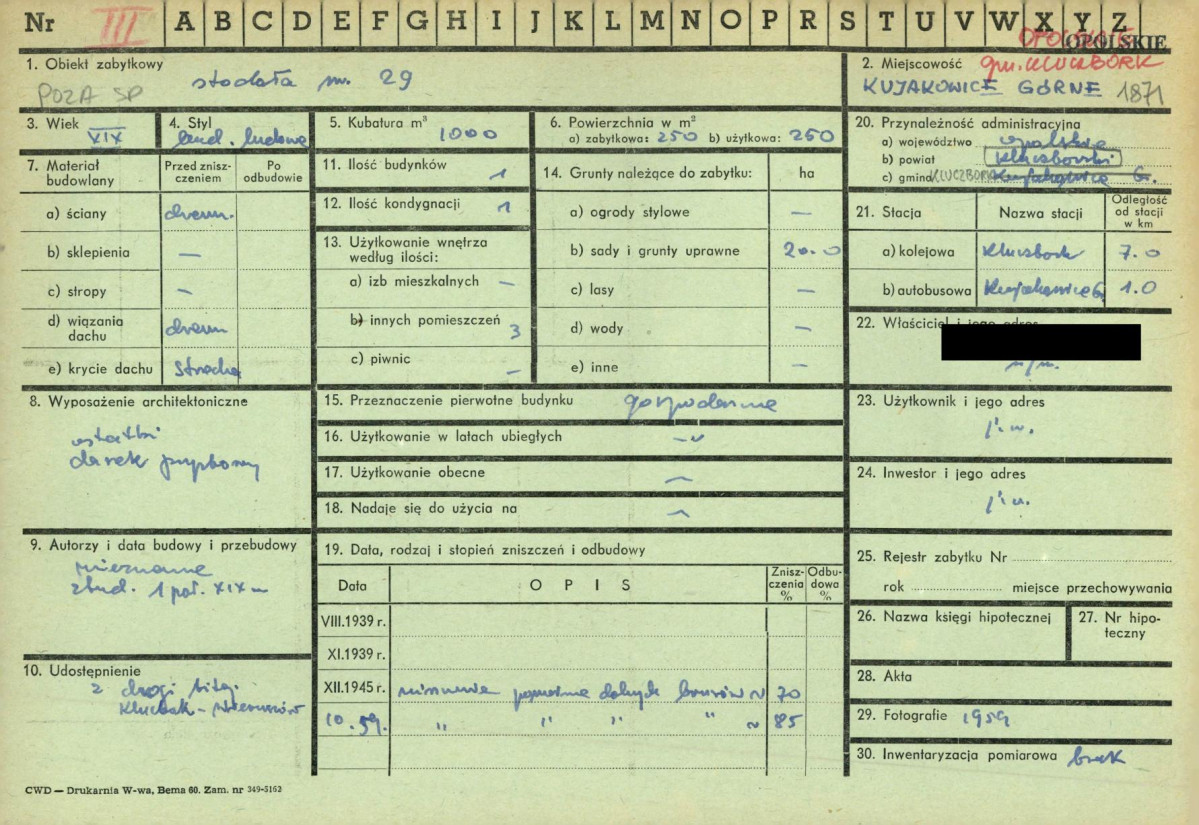 Nr III A B C D E F G H I J K L M N O P R S T U V W X Y Z
OPOLSKIE
1. Obiekt zabytkowy stodoła nr. 29
POZA SP
2. Miejscowość gm. KLUCZBORK
KUJAKOWICE GÓRNE 1871
3. Wiek XIX
4. Styl bud. ludowe
5. Kubatura m³ 1000
6. Powierzchnia w m²
a) zabytkowa: 250 b) użytkowa: 250
7. Materiał budowlany
Przed zniszczeniem
Po odbudowie
a) ściany drewn.
b) sklepienia —
c) stropy —
d) wiązania dachu drewn
e) krycie dachu strzecha
8. Wyposażenie architektoniczne
9. Autorzy i data budowy i przebudowy
nieznane
zbud. 1 poł. XIX w
10. Udostępnienie
z drogi bitej
11. Ilość budynków 1
12. Ilość kondygnacji 1
13. Użytkowanie wnętrza według ilości:
a) izb mieszkalnych —
b) innych pomieszczeń 3
c) piwnic —
14. Grunty należące do zabytku: ha
a) ogrody stylowe —
b) sady i grunty uprawne 20.0
c) lasy —
d) wody —
e) inne —
15. Przeznaczenie pierwotne budynku gospodarcze
16. Użytkowanie w latach ubiegłych
17. Użytkowanie obecne
18. Nadaje się do użycia na
19. Data, rodzaj i stopień zniszczeń i odbudowy
Data OPIS Zniszczenia % Odbudowa %
VIII.1939 r.
XI.1939 r.
XII.1945 r. 70
10.59. " " " " 85
20. Przynależność administracyjna
a) województwo opolskie
b) powiat kluczborski
c) gmina KLUCZBORK Kujakowice G.
21. Stacja Nazwa stacji Odległość od stacji w km
a) kolejowa Kluczbork 7.0
b) autobusowa Kujakowice G. 1.0
22. Właściciel i jego adres
23. Użytkownik i jego adres
j.w.
24. Inwestor i jego adres
j.w.
25. Rejestr zabytku Nr
rok miejsce przechowywania
26. Nazwa księgi hipotecznej
27. Nr hipoteczny
28. Akta
29. Fotografie 1959
30. Inwentaryzacja pomiarowa brak
CWD — Drukarnia W-wa, Bema 60. Zam. nr 349-5162